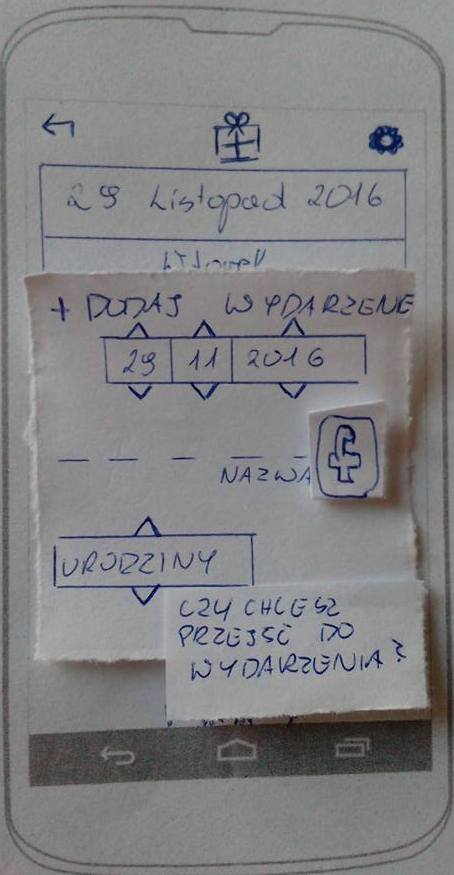 29 Listopad 2016
+ DODAJ WYDARZENIE
29 11 2016
NAZWA
URODZINY
CZY CHCESZ
PRZEJŚĆ DO
WYDARZENIA?